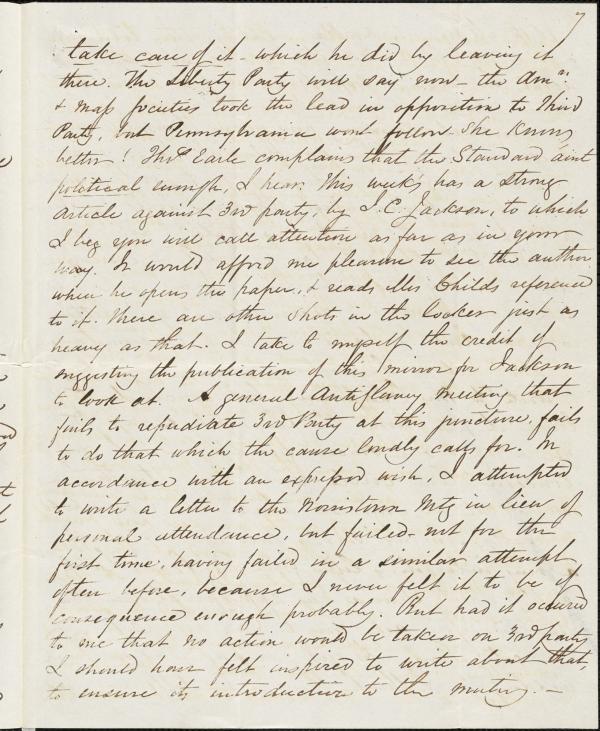 7
take care of it - which he did by leaving it
there. The Liberty Party will say now - the Amn.
& Mass societies took the lead in opposition to Third
Party, but Pennsylvania wont follow. She knows
better! Thos. Earle complains that the Standard aint
political enough, I hear. This week's has a strong
article against 3rd party, by J. C. Jackson, to which
I beg you will call attention as far as in your
way. It would afford me pleasure to see the author
when he opens the paper, & reads Mrs Childs reference
to it. There are other shots in the locker just as
heavy as that. I take to myself the credit of
suggesting the publication of this mirror for Jackson
to look at. A general Antislavery meeting that
fails to repudiate 3rd Party at this juncture, fails
to do that which the cause loudly calls for. In
accordance with an expressed wish, I attempted
to write a letter to the Norristown Mtg in lieu of
personal attendance, but failed - not for the
first time, having failed in a similar attempt
often before, because I never felt it to be of
consequence enough probably. But had it occured
to me that no action would be taken on 3rd party,
I should have felt inspired to write about that,
to ensure its introduction to the meeting. -